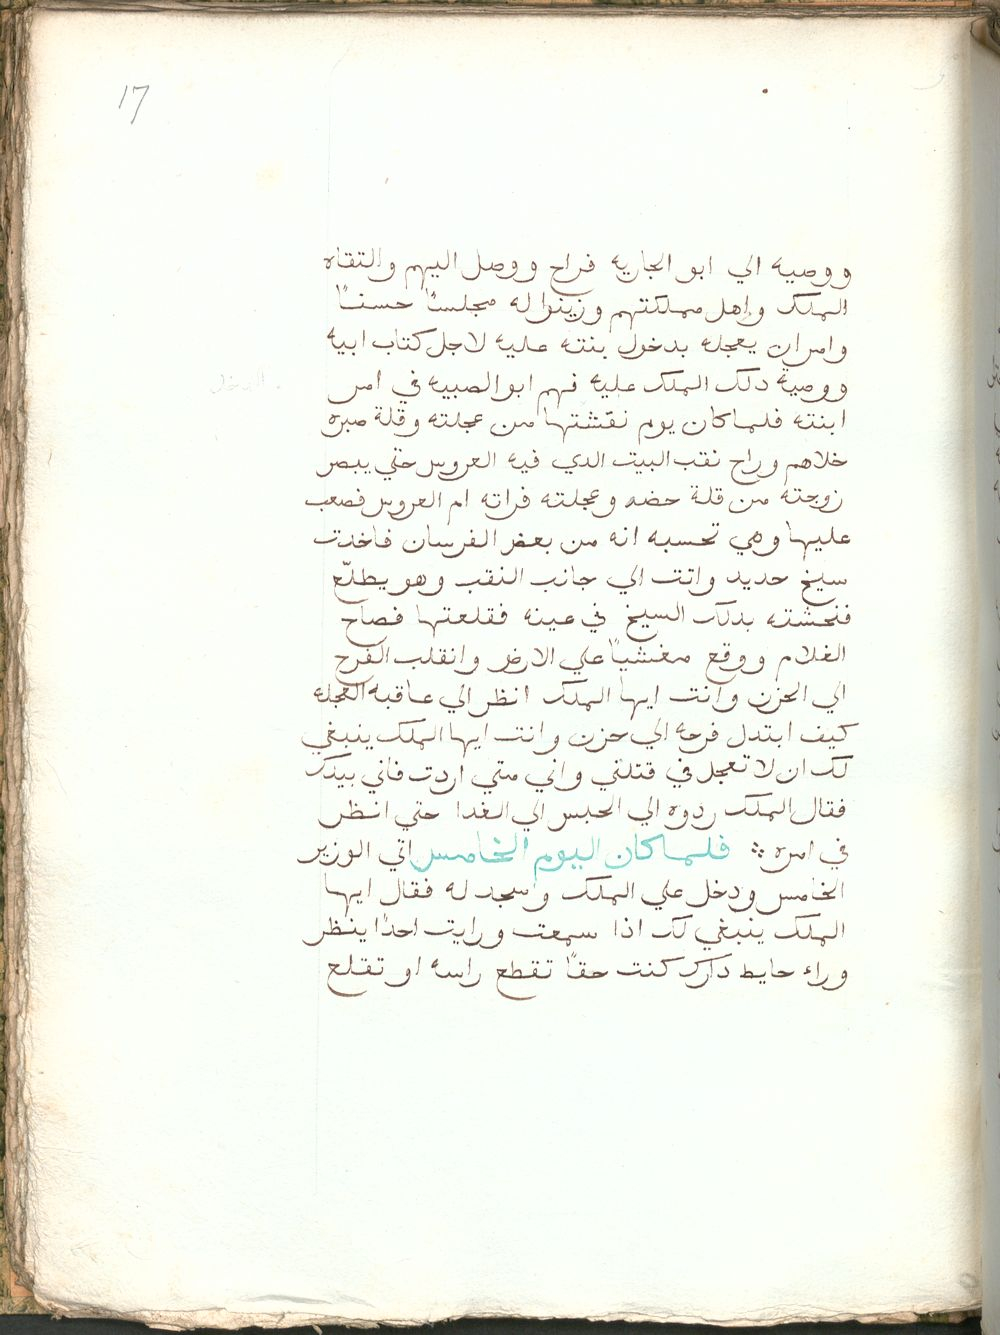 17
ووصيه الي ابو الجاريه فراح ووصل اليهم والتقاه
الملك واهل مملكتهم وزينوا له مجلسًا حسنًا
وامر ان يعجله بدخول بنته عليه لاجل كتاب ابيه
ووصية دلك الملك عليه فهم ابو الصبيه في امر
ابنته فلما كان يوم نقشتها من عجلته وقلة صبره
خلاهم وراح نقب البيت الدي فيه العروس حتي يبصر
زوجته من قلة حضه وعجلته فراته ام العروس فصعب
عليها وهي تحسبه انه من بعض الفرسان فاخدت
سيخ حديد واتت الي جانب النقب وهو يطلّع
فنحشته بدلك السيخ في عينه فقلعتها فصاح
الغلام ووقع مغشيًا علي الارض وانقلب الفرح
الي الحزن وانت ايها الملك انظر الي عاقبه العجله
كيف ابتدل فرحه الي حزن وانت ايها الملك ينبغي
لك ان لا تعجل في قتلتي واني متي اردت فاني بيدك
فقال الملك ردوه الي الحبس الي الغدا حتي انظر
في امره ❖ فلما كان اليوم الخامس اتي الوزير
الخامس ودخل علي الملك وسجد له فقال ايها
الملك ينبغي لك اذا سمعت ورايت احدًا ينظر
وراء حايط دارك كنت حقًا تقطع راسه او تقلع